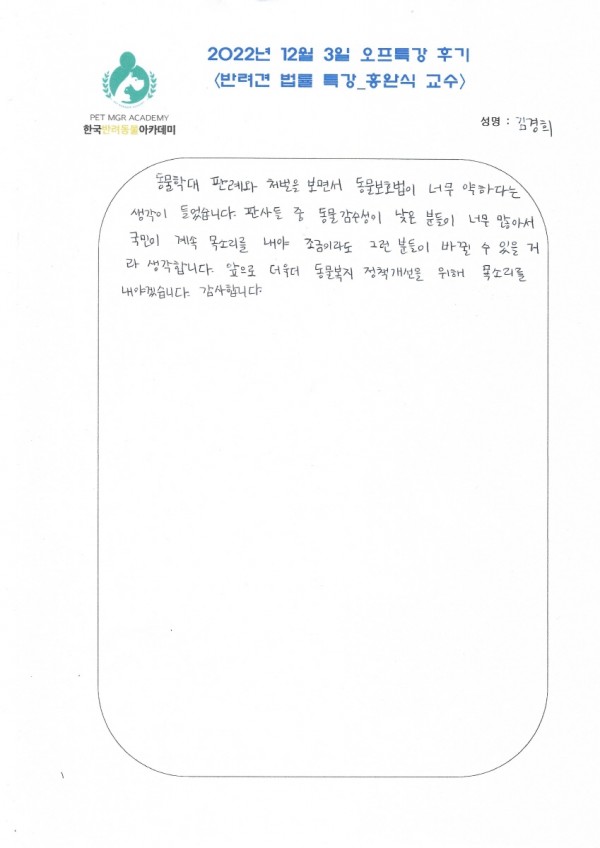 2022년 12월 3일 오프특강 후기
<반려견 법률 특강_홍완식 교수>
PET MGR ACADEMY
한국반려동물아카데미
성명 : 김경희
동물학대 판례와 처벌을 보면서 동물보호법이 너무 약하다는
생각이 들었습니다. 판사들 중 동물감수성이 낮은 분들이 너무 많아서
국민이 계속 목소리를 내야 조금이라도 그런 분들이 바뀔 수 있을 거
라 생각합니다. 앞으로 더욱더 동물복지 정책개선을 위해 목소리를
내야겠습니다. 감사합니다.